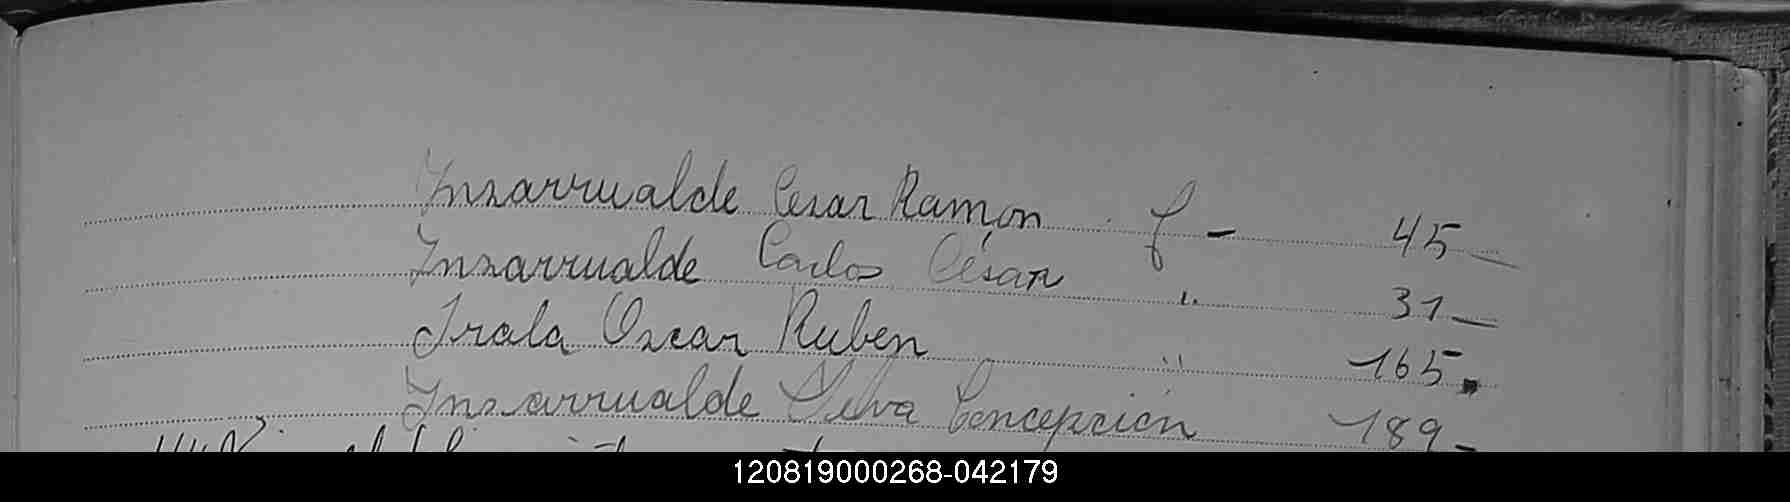 Insarrualde Cesar Ramón f - 45-
Insarrualde Carlos César " 31-
Irala Oscar Ruben " 165.
Insarrualde Silva Concepción 189-
120819000268-042179